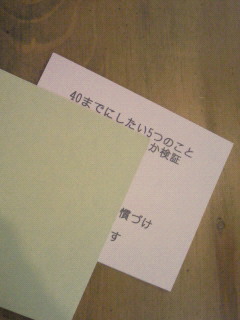 40までにしたい5つのこと
か検証
慣づけ
す